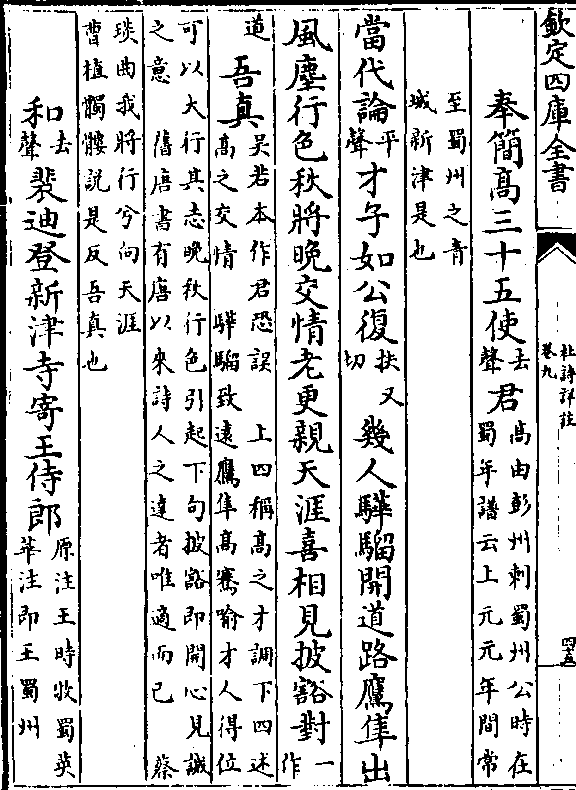 欽定四庫全書
杜詩詳註
卷九
四十五
奉簡高三十五使去聲君高由彭州刺蜀州公時在蜀年譜云上元元年間常
至蜀州之青城新津是也
當代論平聲才子如公復扶又切幾人驊騮開道路鷹隼出
風塵行色秋將晚交情老更親天涯喜相見披豁對一作
道吾真吳若本作君恐誤 上四稱高之才調下四述高之交情 驊騮致遠鷹隼高騫喻才人得位
可以大行其志晚秋行色引起下句披豁即開心見誠之意 舊唐書有唐以來詩人之達者唯適而已 蔡
琰曲我將行兮向天涯 曹植髑髏說是反吾真也
和去聲裴迪登新津寺寄王侍郎原注王時牧蜀英華注即王蜀州